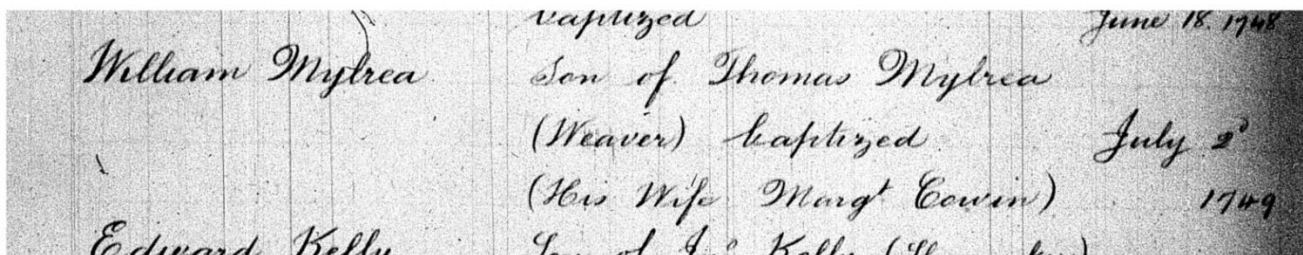 baptized June 18. 1748
William Mylrea Son of Thomas Mylrea
(Weaver) baptized July 2d
(His Wife Margt Cowin) 1749
Edward Kelly Son of Jno Kelly